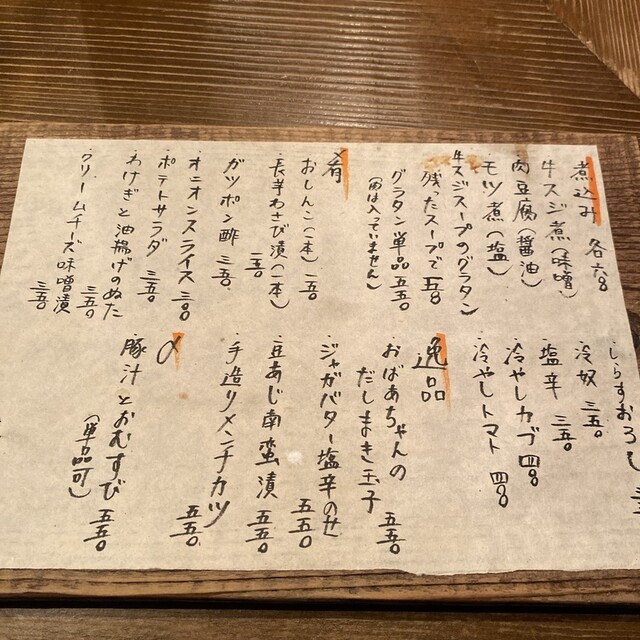 煮込み 各六〇〇
・牛スジ煮(味噌)
・肉豆腐(醤油)
・モツ煮(塩)
牛スジスープのグラタン
残ったスープで 五五〇
グラタン単品 五五〇
(肉は入っていません)
肴
・おしんこ(一本) 一五〇
・長芋わさび漬(一本) 一五〇
・ガツポン酢 三五〇
・オニオンスライス 三〇〇
・ポテトサラダ 三五〇
・わけぎと油揚げのぬた 三五〇
・クリームチーズ味噌漬 三五〇
・しらすおろし
・冷奴 三五〇
・塩辛 三五〇
・冷やしカブ 四〇〇
・冷やしトマト 四〇〇
逸品
・おばあちゃんの
だしまき玉子 五五〇
・ジャガバター塩辛のせ 五五〇
・豆あじ南蛮漬 五五〇
・手造りメンチカツ 五五〇
〆
・豚汁とおむすび 五五〇
(単品可)